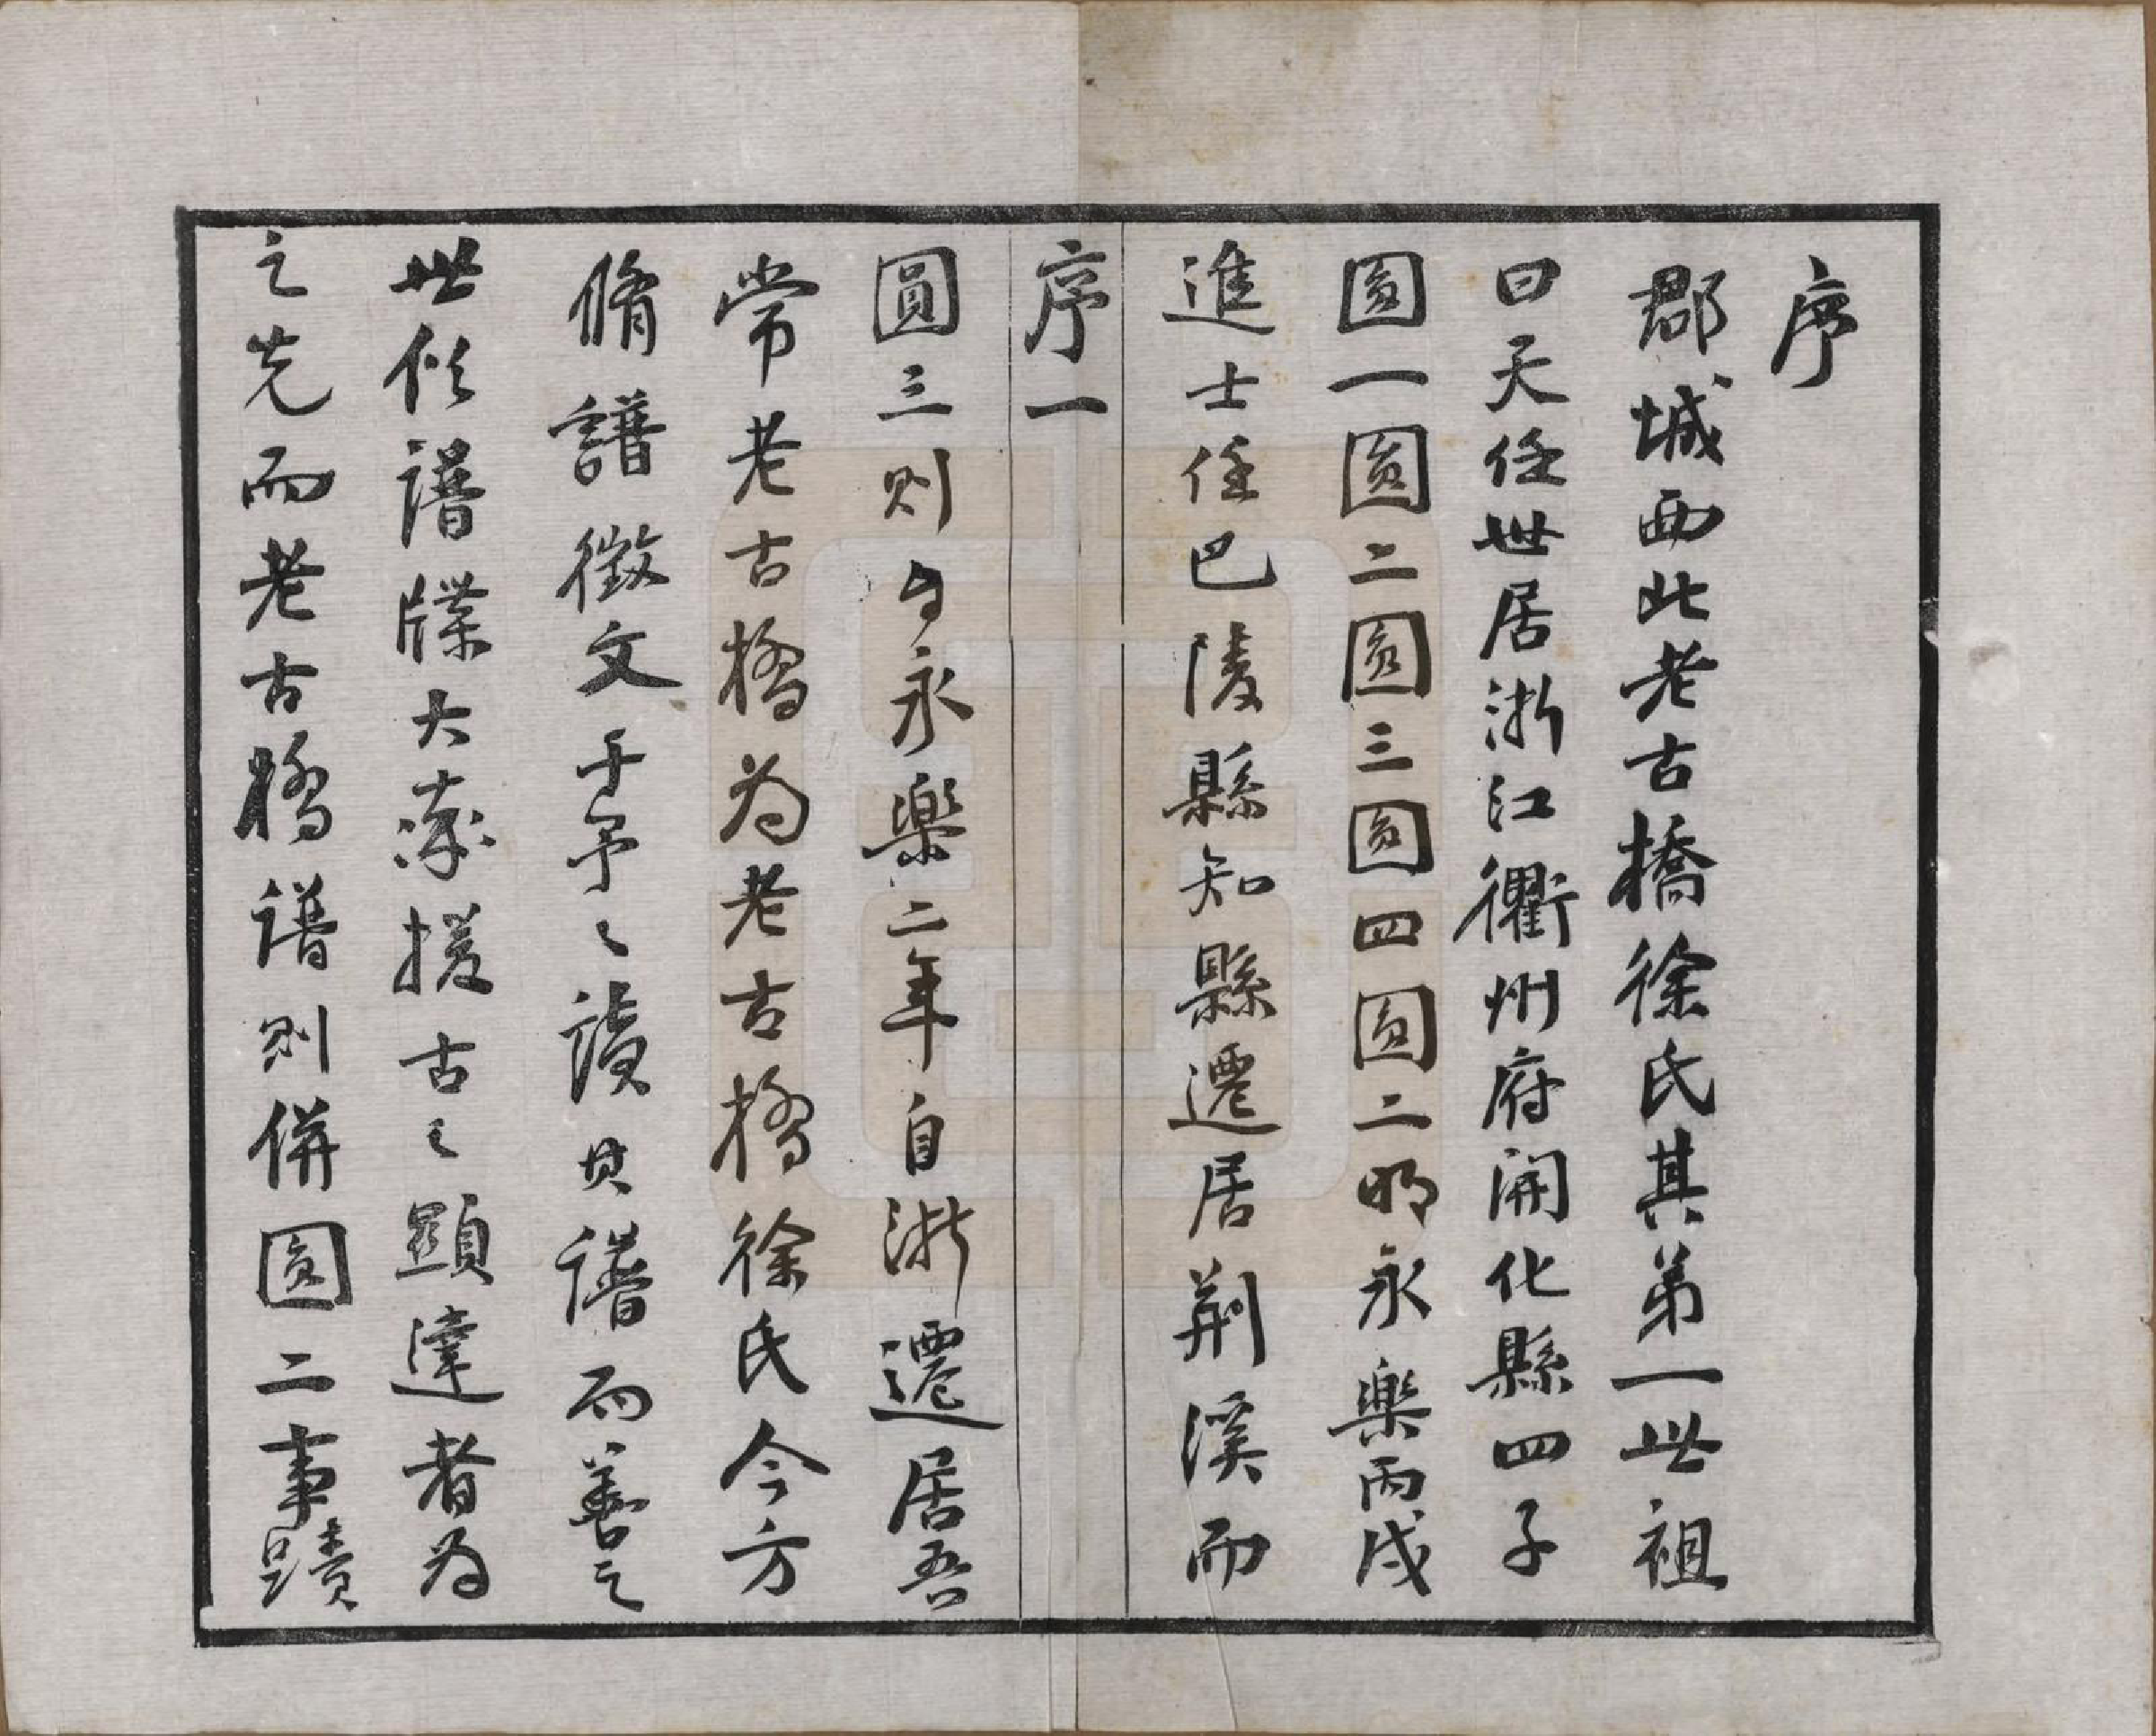 序
郡城西北老古橋徐氏其弟一世祖
曰天任世居浙江衢州府開化縣四子
圓一圓二圓三圓四圓二明永樂丙戌
進士任巴陵縣知縣遷居荆溪而
序一
圓三則當永樂二年自浙遷居吾
常老古橋为老古橋徐氏今方
脩譜徵文于予〻讀其譜而善之
世俗譜牒大率援古之顯達者为
之先而老古橋譜則併圓二事蹟